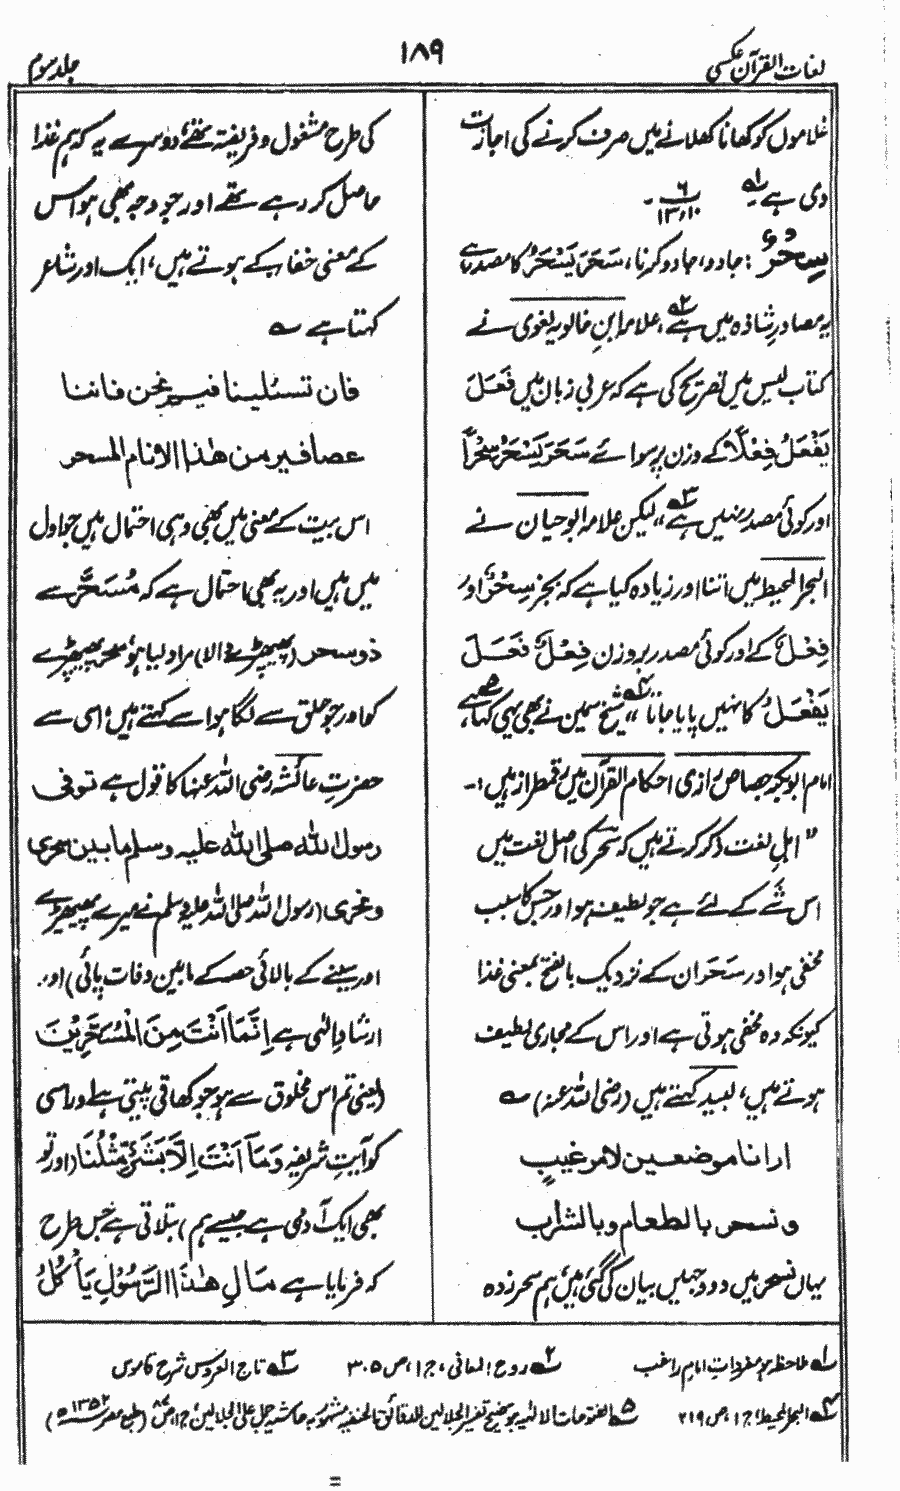 لغات القرآن عکسی
۱۸۹
جلد سوم
غلاموں کو کھانا کھلانے میں صرف کرنے کی اجازت
دی ہے لہ
سِحْرٌ : جادو، جادو کرنا، سَحَرَ یَسْحَرُ کا مصدر ہے
یہ مصادرِ شاذہ میں ہے ۲، علامہ ابن خالویہ لغوی نے
کتاب لیس میں تصریح کی ہے کہ عربی زبان میں فَعَلَ
یَفْعَلُ فِعْلًا کے وزن پر سوائے سَحَرَ یَسْحَرُ سِحْرًا
اور کوئی مصدر نہیں ہے ۳" لیکن علامہ ابوحیان نے
البحر المحیط میں اتنا اور زیادہ کہا ہے کہ بجز سِحْرٌ اور
فِعْلٌ کے اور کوئی مصدر بروزن فِعْلٌ فَعَلَ
یَفْعَلُ کا نہیں پایا جاتا ۴" شیخ سمین نے بھی یہی کہا ہے،
امام ابوبکر جصاص رازی احکام القرآن میں رقمطراز ہیں :-
" اہلِ لغت ذکر کرتے ہیں کہ سحر کی اصل لغت میں
اس شے کے لئے ہے جو لطیف ہو اور جس کا سبب
مخفی ہو اور سَحَر ان کے نزدیک بالفتح بمعنی غذا
کیونکہ وہ مخفی ہوتی ہے اور اس کے مجاری لطیف
ہوتے ہیں، لبید کہتے ہیں (رضی اللہ عنہ) ؎
ارانا موضعین لامر غیبٍ
و نسحر بالطعام و بالشراب
یہاں نسحر میں دو وجہیں بیان کی گئی ہیں، ہم سحر زدہ
کی طرح مشغول و فریفتہ تھے، دوسرے یہ کہ ہم غذا
حاصل کر رہے تھے اور جو وجہ بھی ہو اس
کے معنی خفا ہی کے ہوتے ہیں، ایک اور شاعر
کہتا ہے ؎
فان تسئلینا فیم نحن فاننا
عصافیر من ھٰذا الانام المسحر
اس بیت کے معنی میں بھی وہی احتمال ہیں جو اول
میں ہیں اور یہ بھی احتمال ہے کہ مُسَحَّر سے
ذو سحر (پھیپھڑے والا) مراد لیا ہو، سحر پھیپھڑے
کو اور جو حلق سے لگا ہو اسے کہتے ہیں، اسی سے
حضرتِ عائشہ رضی اللہ عنہا کا قول ہے توفی
رسول اللہ صلی اللہ علیہ وسلم مابین سحری
و نحری (رسول اللہ صلی اللہ علیہ وسلم نے میرے پھیپھڑے
اور سینے کے بالائی حصے کے مابین وفات پائی) اور
ارشادِ الٰہی ہے اِنَّمَا اَنْتَ مِنَ الْمُسَحَّرِیْنَ
(یعنی تم اس مخلوق سے ہو جو کھاتی پیتی ہے) اور اسی
کو آیتِ شریفہ وَمَا اَنْتَ اِلَّا بَشَرٌ مِّثْلُنَا (اور تو
بھی ایک آدمی ہے جیسے ہم) بتلاتی ہے جس طرح
کہ فرمایا ہے مَالِ ھٰذَا الرَّسُوْلِ یَأْکُلُ
۱ ملاحظہ ہو مفرداتِ امام راغب
۲ روح المعانی، ج ۱، ص ۳۰۵
۳ تاج العروس شرح قاموس
۴ البحر المحیط، ج ۱، ص ۲۱۹
۵ الفتوحات الالٰہیہ بتوضیح تفسیر الجلالین للدقائق الخفیہ مشہور بہ حاشیہ جمل علی الجلالین، ج ۱، ص (طبع مصر ۱۳۵۲ھ)